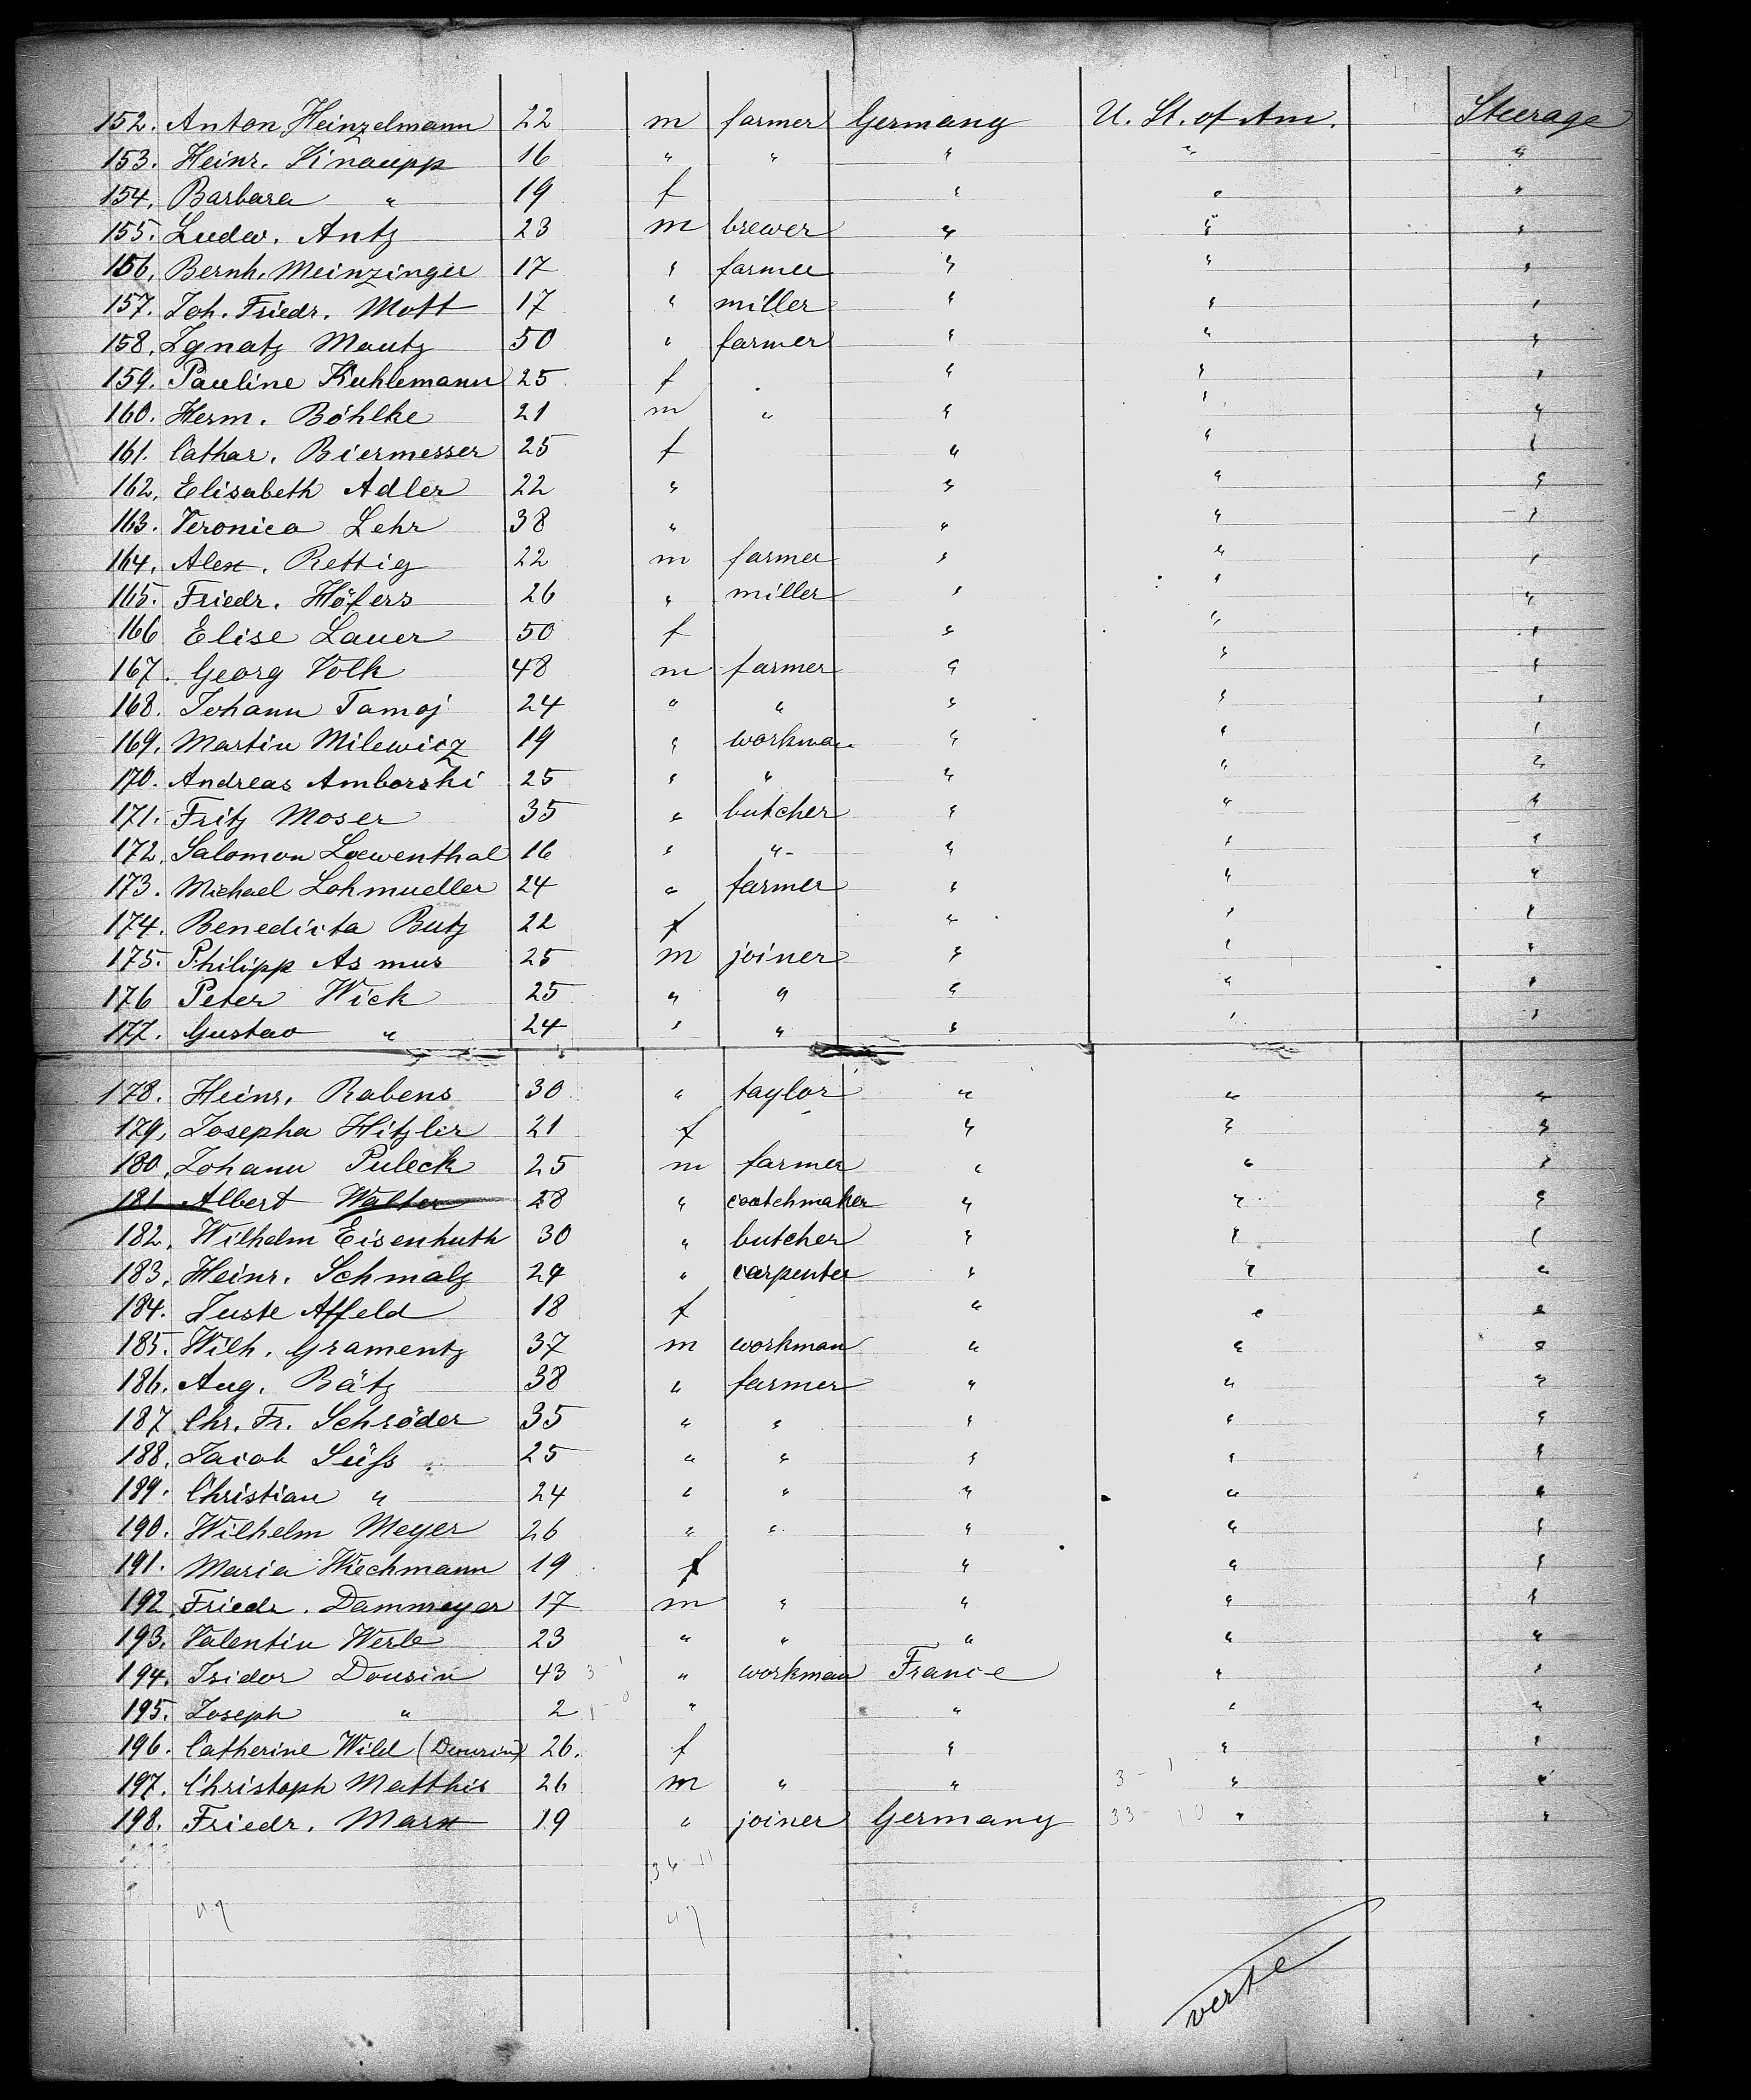 152. Anton Heinzelmann 22 m farmer Germany U. St. of Am. Steerage
153. Heinr. Knaupp 16 " " " " "
154. Barbara " 19 f " " "
155. Ludw. Antz 23 m brewer " " "
156. Bernh. Meinzinger 17 " farmer " " "
157. Joh. Friedr. Mott 17 " miller " " "
158. Ignatz Mautz 50 " farmer " " "
159. Pauline Kuhlemann 25 f " " "
160. Herm. Böhlke 21 m " " " "
161. Cathar. Biermesser 25 f " " "
162. Elisabeth Adler 22 " " " "
163. Veronica Lehr 38 " " " "
164. Alex. Rettig 22 m farmer " " "
165. Friedr. Höfers 26 " miller " " "
166 Elise Lauer 50 f " " "
167. Georg Volk 48 m farmer " " "
168. Johann Tamoj 24 " " " " "
169. Martin Milewicz 19 " workman " " "
170. Andreas Amborski 25 " " " " "
171. Fritz Moser 35 " butcher " " "
172. Salomon Loewenthal 16 " " " " "
173. Michael Lohmueller 24 " farmer " " "
174. Benedicta Butz 22 f " " "
175. Philipp Asmus 25 m joiner " " "
176 Peter Wick 25 " " " " "
177. Gustav " 24 " " " " "
178. Heinr. Rabens 30 " taylor " " "
179. Josepha Hitzler 21 f " " "
180. Johann Puleck 25 m farmer " " "
181 Albert Walter 28 " coatchmaker " " "
182. Wilhelm Eisenhuth 30 " butcher " " "
183. Heinr. Schmalz 24 " carpenter " " "
184. Juste Affeld 18 f " " "
185. Wilh. Gramentz 37 m workman " " "
186. Aug. Bätz 38 " farmer " " "
187. Chr. Fr. Schröder 35 " " " " "
188. Jacob Süss 25 " " " " "
189. Christian " 24 " " " " "
190. Wilhelm Meyer 26 " " " " "
191. Maria Wiechmann 19 f " " "
192. Friedr. Dammeyer 17 m " " " "
193. Valentin Werle 23 " " " " "
194. Isidor Dousin 43 3-1 " workman France " "
195. Joseph " 2 1-0 " " " "
196. Catherine Wild (Dousin) 26. f " " "
197. Christoph Matthis 26 m " " 3-1 " "
198. Friedr. Marx 19 " joiner Germany 33-10 " "
36-11
47 47
verte